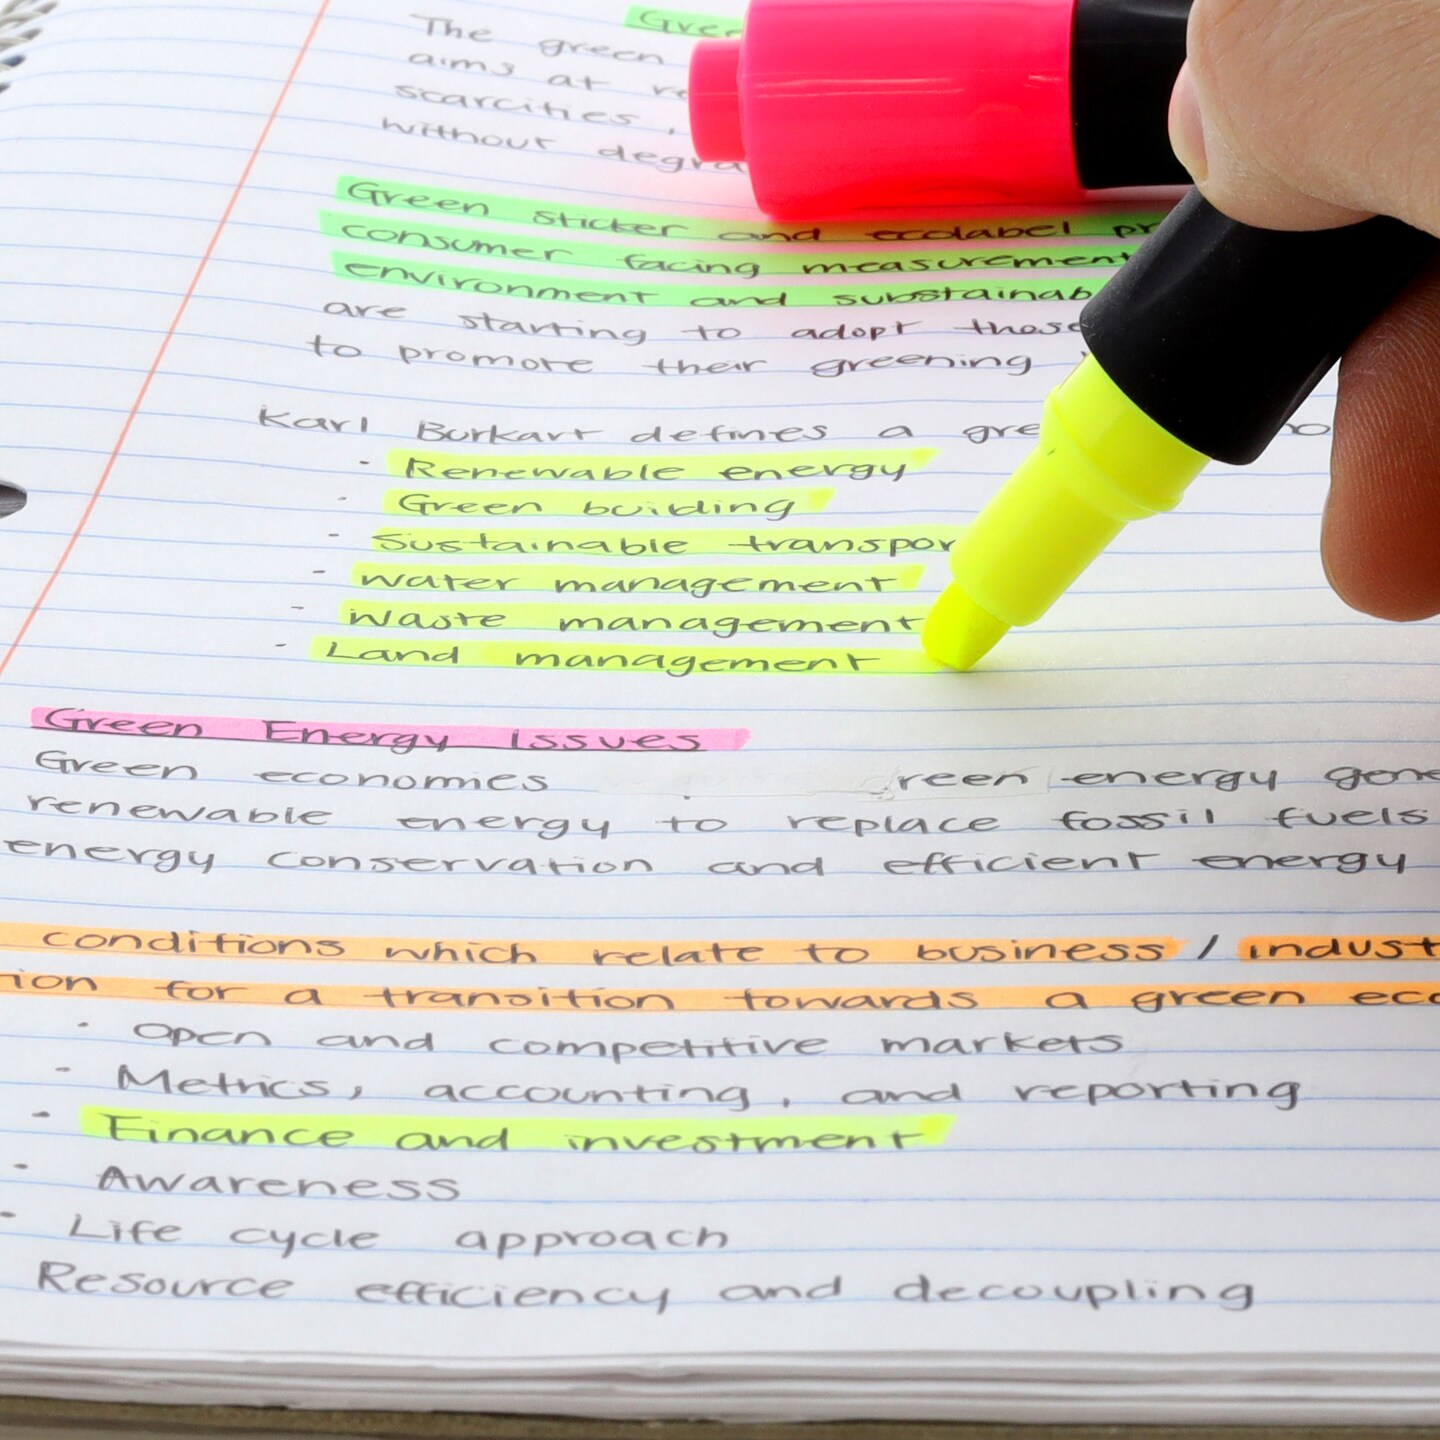 The green
aims at
scarcities,
without
Green sticker and ecolabel
consumer facing measurement
environment and
are starting to adopt
to promote their greening
Karl Burkart defines a
- Renewable energy
- Green building
- Sustainable
- water management
- Waste management
- Land management
Green Energy Issues
Green economies energy
renewable energy to replace fossil fuels
energy conservation and efficient energy
conditions which relate to business /
for a transition towards a green
- Open and competitive markets
- Metrics, accounting, and reporting
- Finance and investment
- Awareness
- Life cycle approach
Resource efficiency and decoupling